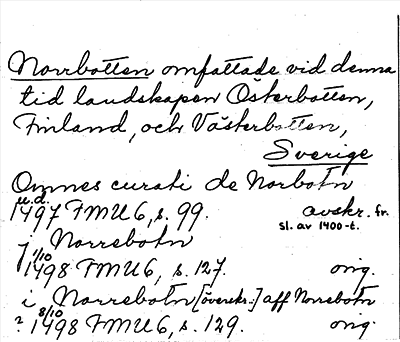 Norrbotten omfattade vid denna
tid landskapen Österbotten,
Finland, och Västerbotten,
Sverige
Omnes curati de Norbotn
u.d.
1497 FMU 6, s. 99. avskr. fr.
sl. av 1400-t.
J Norrebotn
1/10
1498 FMU 6, s. 127. orig.
i Norrebotn [överskr.:] aff Norrebotn
? 8/10
1498 FMU 6, s. 129. orig.